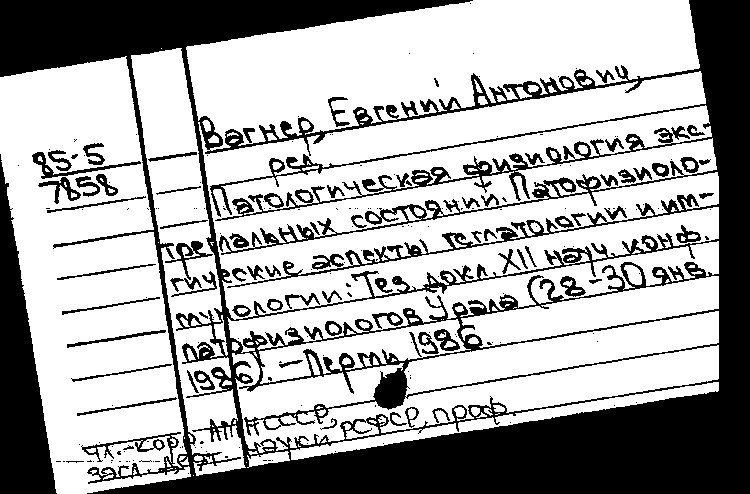 Вагнер, Евгений Антонович,
85-5
7858
ред.
Патологическая физиология экс-
тремальных состояний. Патофизиоло-
гические аспекты гематологии и им-
мунологии: Тез. докл. XII науч. конф.
патофизиологов Урала (28-30 янв.
1986). — Пермь, 1986.
Чл.-корр. АМН СССР,
засл. деят. науки РСФСР, проф.